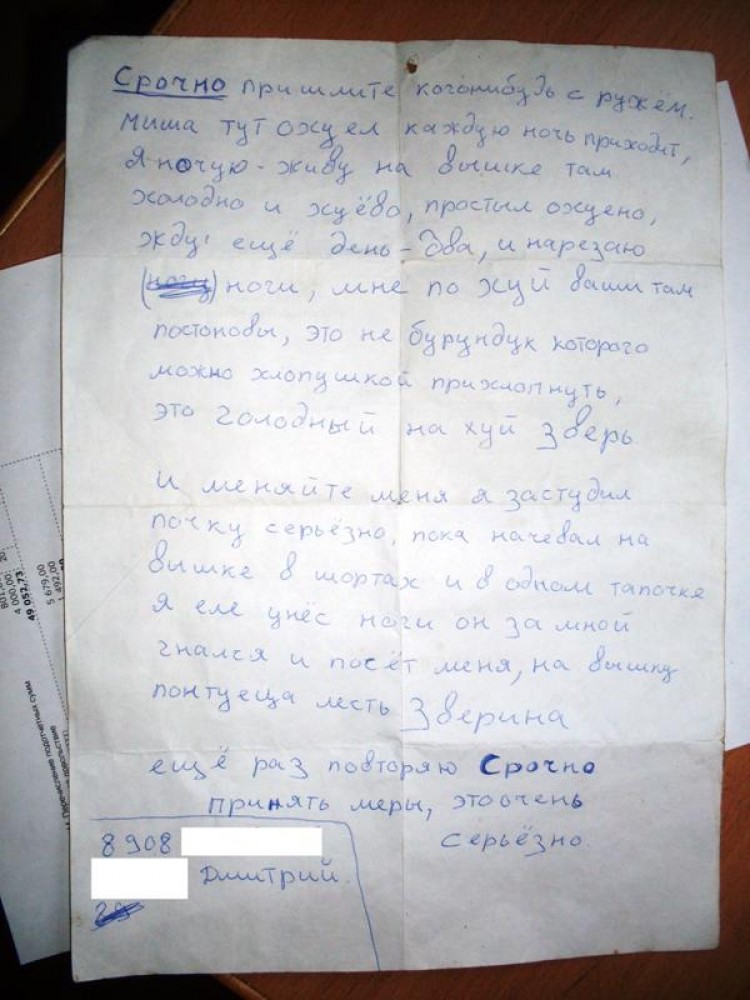 Срочно пришлите когонибудь с ружём.
Миша тут охуел каждую ночь приходит,
Я ночую - живу на вышке там
холодно и хуёво, простыл охуено,
жду ещё день - два, и нарезаю
ноги, мне по хуй ваши там
постоновы, это не бурундук которого
можно хлопушкой прихлопнуть,
это голодный на хуй зверь.
И меняйте меня я застудил
почку серьёзно, пока начевал на
вышке в шортах и в одном тапочке
я еле унёс ноги он за мной
гнался и посёт меня, на вышку
понтуеща лесть Зверина
ещё раз повторяю Срочно
принять меры, это очень
серьёзно.
8 908
Дмитрий.
801,00 20
4 000,00
49 052,73
5 679,00
1 492,00
Перечисление подотчетных сумм